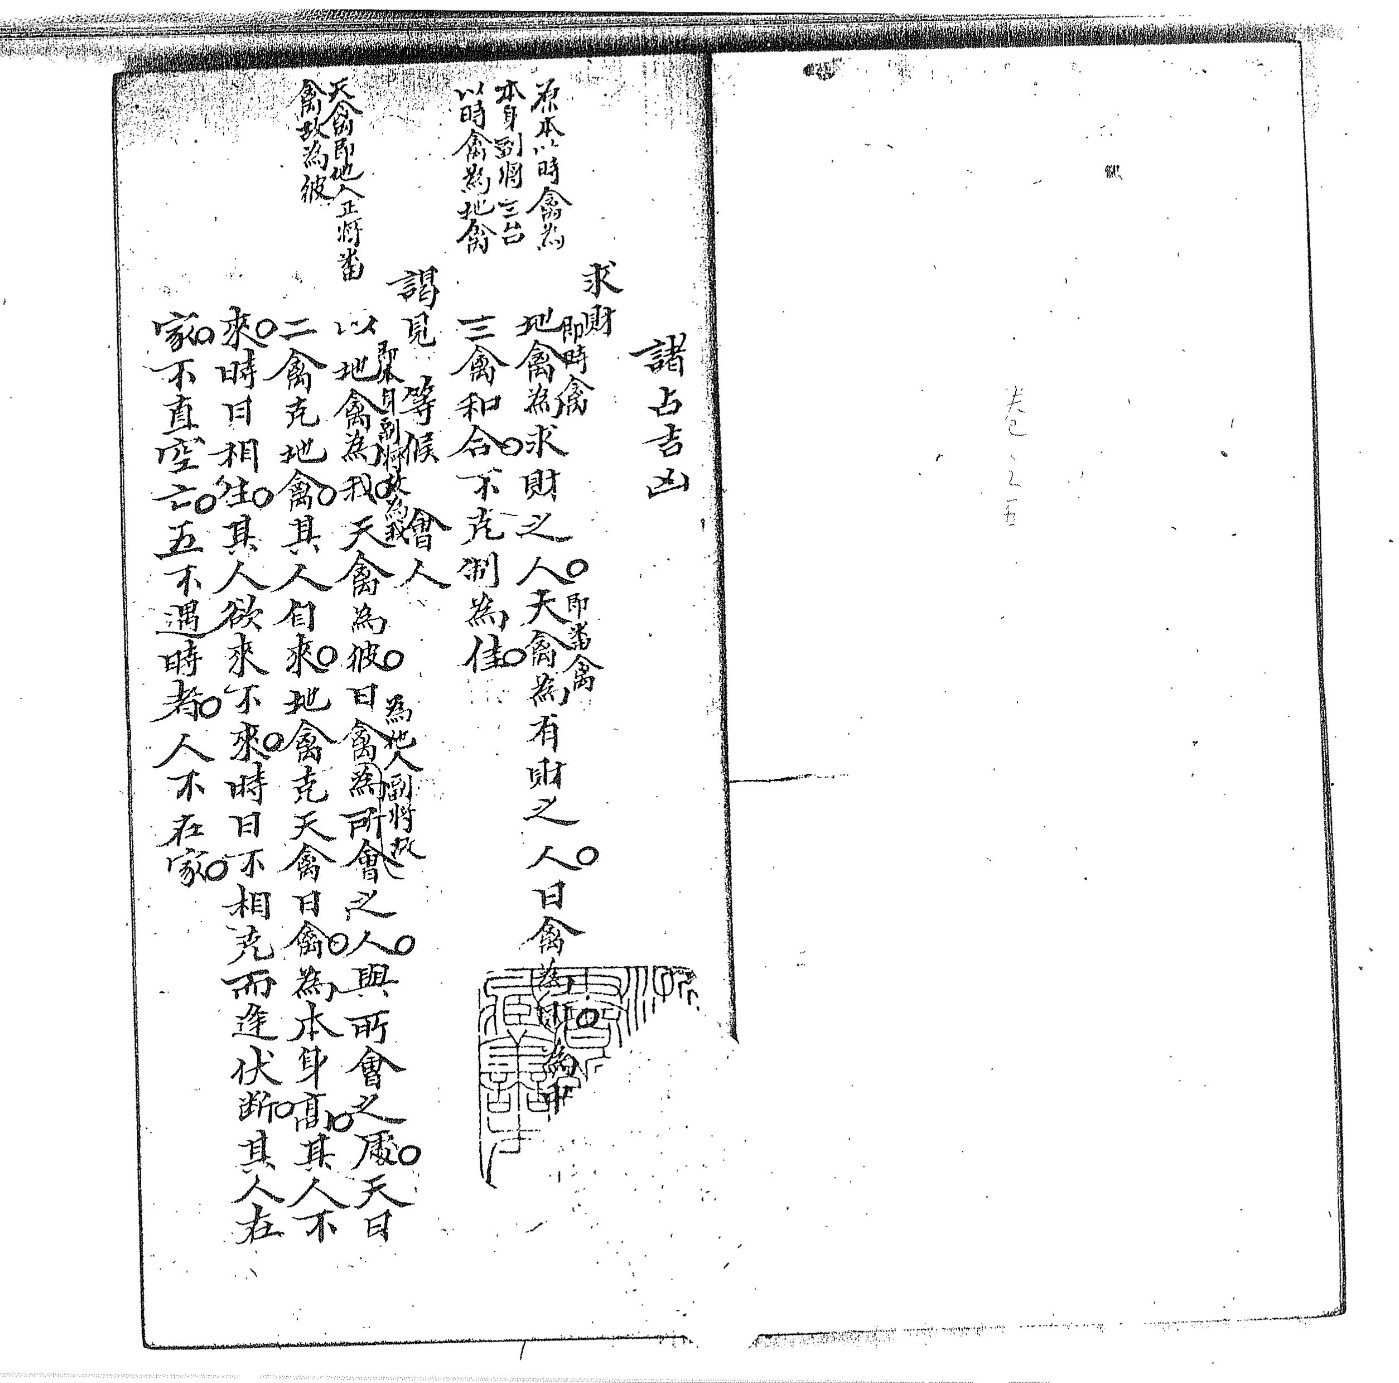 卷之五
諸占吉凶
求財
即時禽 即畨禽
地禽為求財之人天禽為有財之人日禽為財 為中
三禽和合不克制為佳
謁見 等候 會人
即本身副將故為我 為他人副將故
以地禽為我天禽為彼日禽為所會之人與所會之處天日
二禽克地禽其人自來地禽克天禽日禽為本身高其人不
來時日相生其人欲來不來時日不相克而逢伏断其人在
家不直空亡五不遇時者人不在家
原本以時禽為
本身副將三台
以時禽為地禽
天禽即他人正將畨
禽故為彼